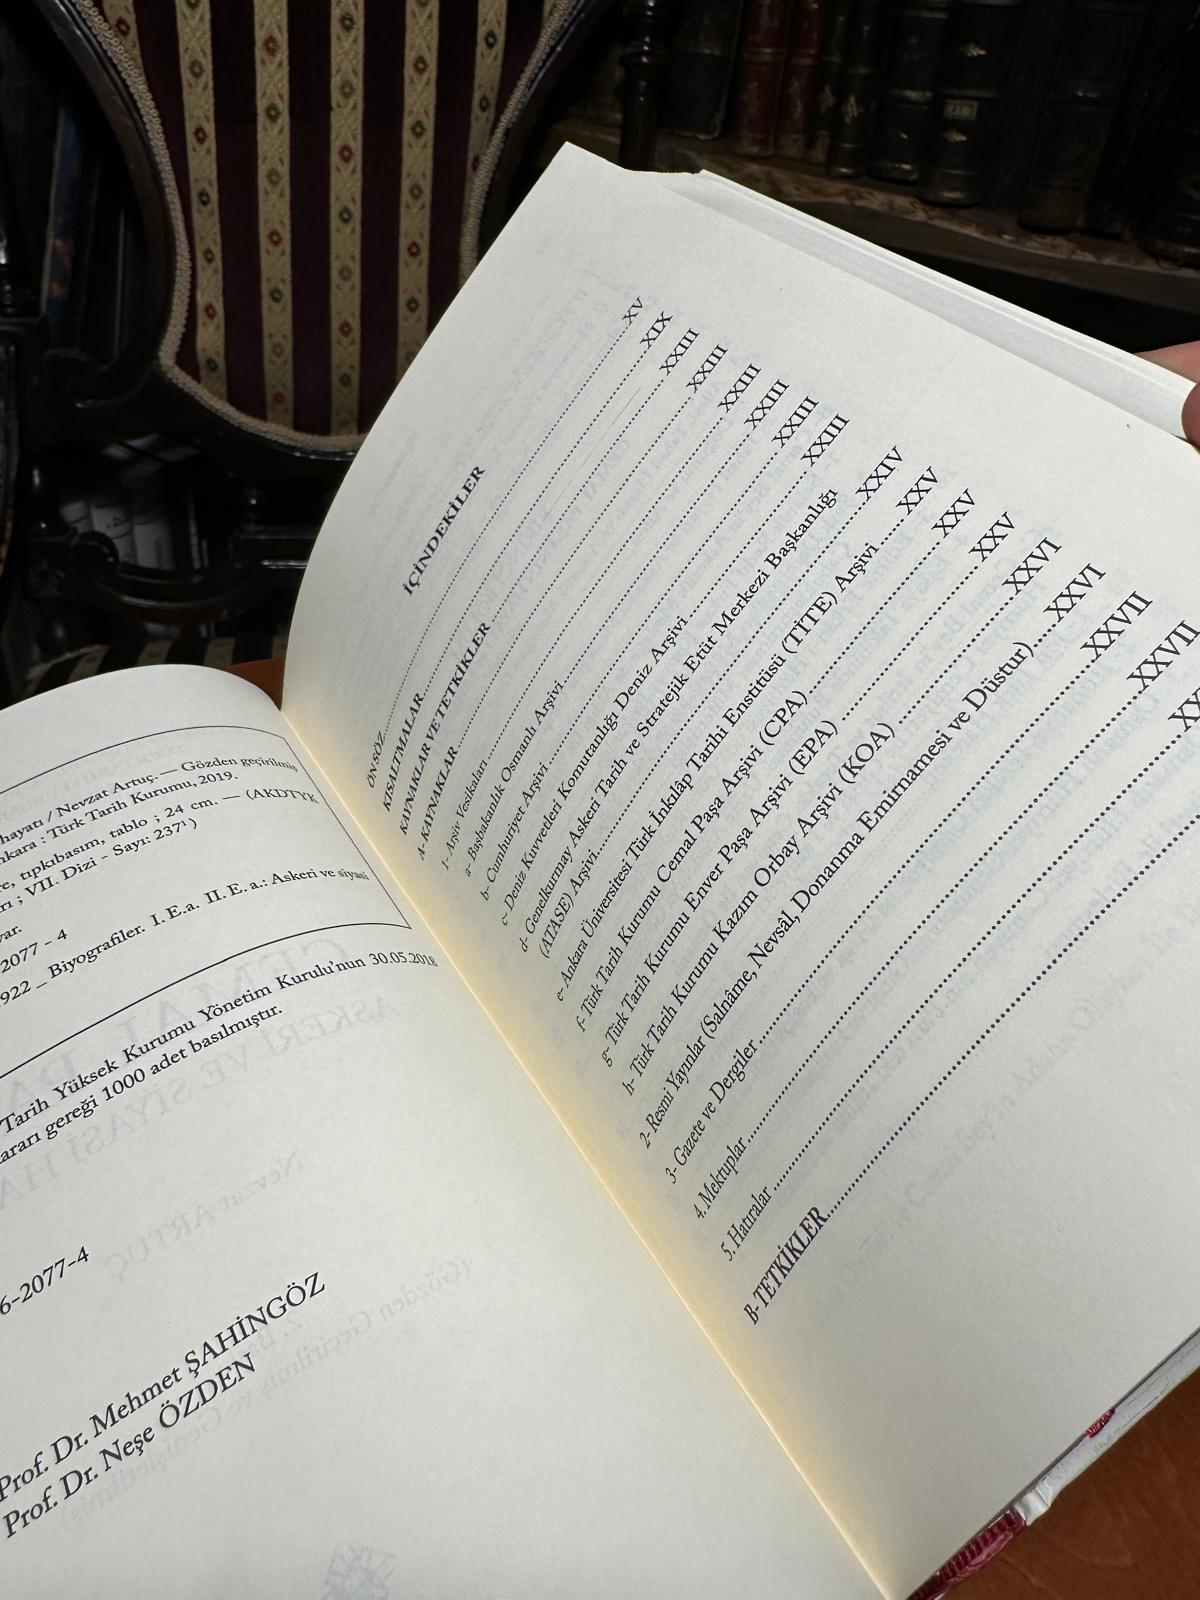 hayatı / Nevzat Artuç.— Gözden geçirilmiş
: Türk Tarih Kurumu, 2019.
tıpkıbasım, tablo ; 24 cm. — (AKDTYK
; VII. Dizi - Sayı: 237¹)
2077 - 4
1922 _ Biyografiler. I. E.a. II. E. a.: Askeri ve siyasi
Tarih Yüksek Kurumu Yönetim Kurulu'nun 30.05.2018
gereği 1000 adet basılmıştır.
6-2077-4
Prof. Dr. Mehmet ŞAHİNGÖZ
Prof. Dr. Neşe ÖZDEN
İÇİNDEKİLER
ÖNSÖZ XV
KISALTMALAR XIX
KAYNAKLAR VE TETKİKLER XXIII
A- KAYNAKLAR XXIII
1- Arşiv Vesikaları XXIII
a- Başbakanlık Osmanlı Arşivi XXIII
b- Cumhuriyet Arşivi XXIII
c- Deniz Kuvvetleri Komutanlığı Deniz Arşivi XXIII
d- Genelkurmay Askeri Tarih ve Stratejik Etüt Merkezi Başkanlığı
(ATASE) Arşivi XXIV
e- Ankara Üniversitesi Türk İnkılâp Tarihi Enstitüsü (TİTE) Arşivi XXV
f- Türk Tarih Kurumu Cemal Paşa Arşivi (CPA) XXV
g- Türk Tarih Kurumu Enver Paşa Arşivi (EPA) XXV
h- Türk Tarih Kurumu Kazım Orbay Arşivi (KOA) XXVI
2- Resmi Yayınlar (Salnâme, Nevsâl, Donanma Emirnamesi ve Düstur) XXVI
3- Gazete ve Dergiler XXVII
4. Mektuplar XXVII
5. Hatıralar
B- TETKİKLER